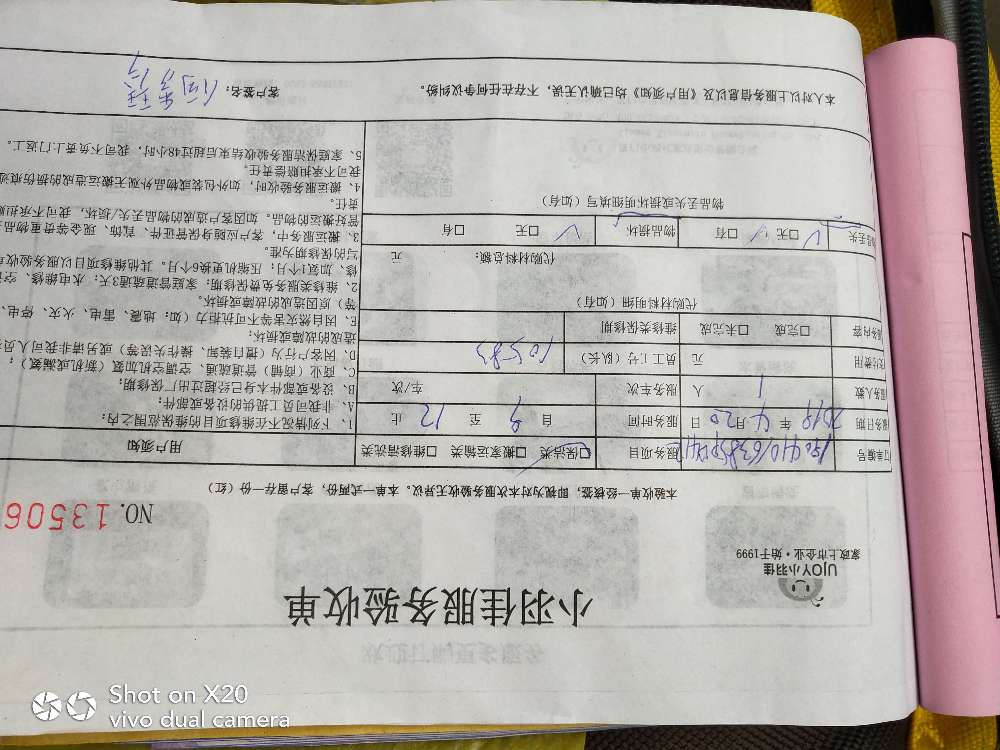 小羽佳服务验收单
UJOY小羽佳
家政上市企业·始于1999
NO. 13506
本验收单一经签签，即视为对本次服务验收无异议。本单一式两份，客户留存一份（红）
服务项目 □保洁类 □搬家运输类 □维修清洗类
服务日期 2019 年 4 月 20 日 服务时间 自 9 至 12 止
服务人数 1 人 服务车次 车/次
元 员工工号（队长） 103583
服务内容 □完成 □未完成 维修类保修期
代购材料明细（如有）
代购材料总额： 元
□有 □无 物品损坏 □无 □有
物品丢失或损坏明细填写（如有）
用户须知
1、下列情况不在维修项目的维保范围之内：
A、非我司员工提供的设备或部件；
B、设备或部件本身已经超过出厂保修期；
C、商业（商铺）管道疏通、空调空机加氨（新机或漏氨）；
D、因客户行为（擅自装卸、操作失误等）或另请非我司人员
造成的故障或损坏；
E、因自然灾害等不可抗拒力（如：地震、雷电、火灾、停电、
等）原因造成的故障或损坏。
2、维修类服务免费保修期：家庭管道疏通3天；水电维修、空
修、加氨1个月；压缩机更换6个月。其他维修项目以服务验收单
写的保修期为准。
3、搬运服务中，客户应随身保管证件、首饰、现金等贵重物品
管好搬运的物品。如因客户造成的物品丢失/损坏，我司不承担赔
责任。
4、搬运服务验收时，如外包装或物品外观无搬运造成的损伤痕迹
我司不承担赔偿责任。
5、家庭保洁服务验收结束后超过48小时，我司不负责上门返工。
本人对以上服务信息以及《用户须知》均已确认无误，不存在任何争议纠纷。 客户签名：
Shot on X20
vivo dual camera